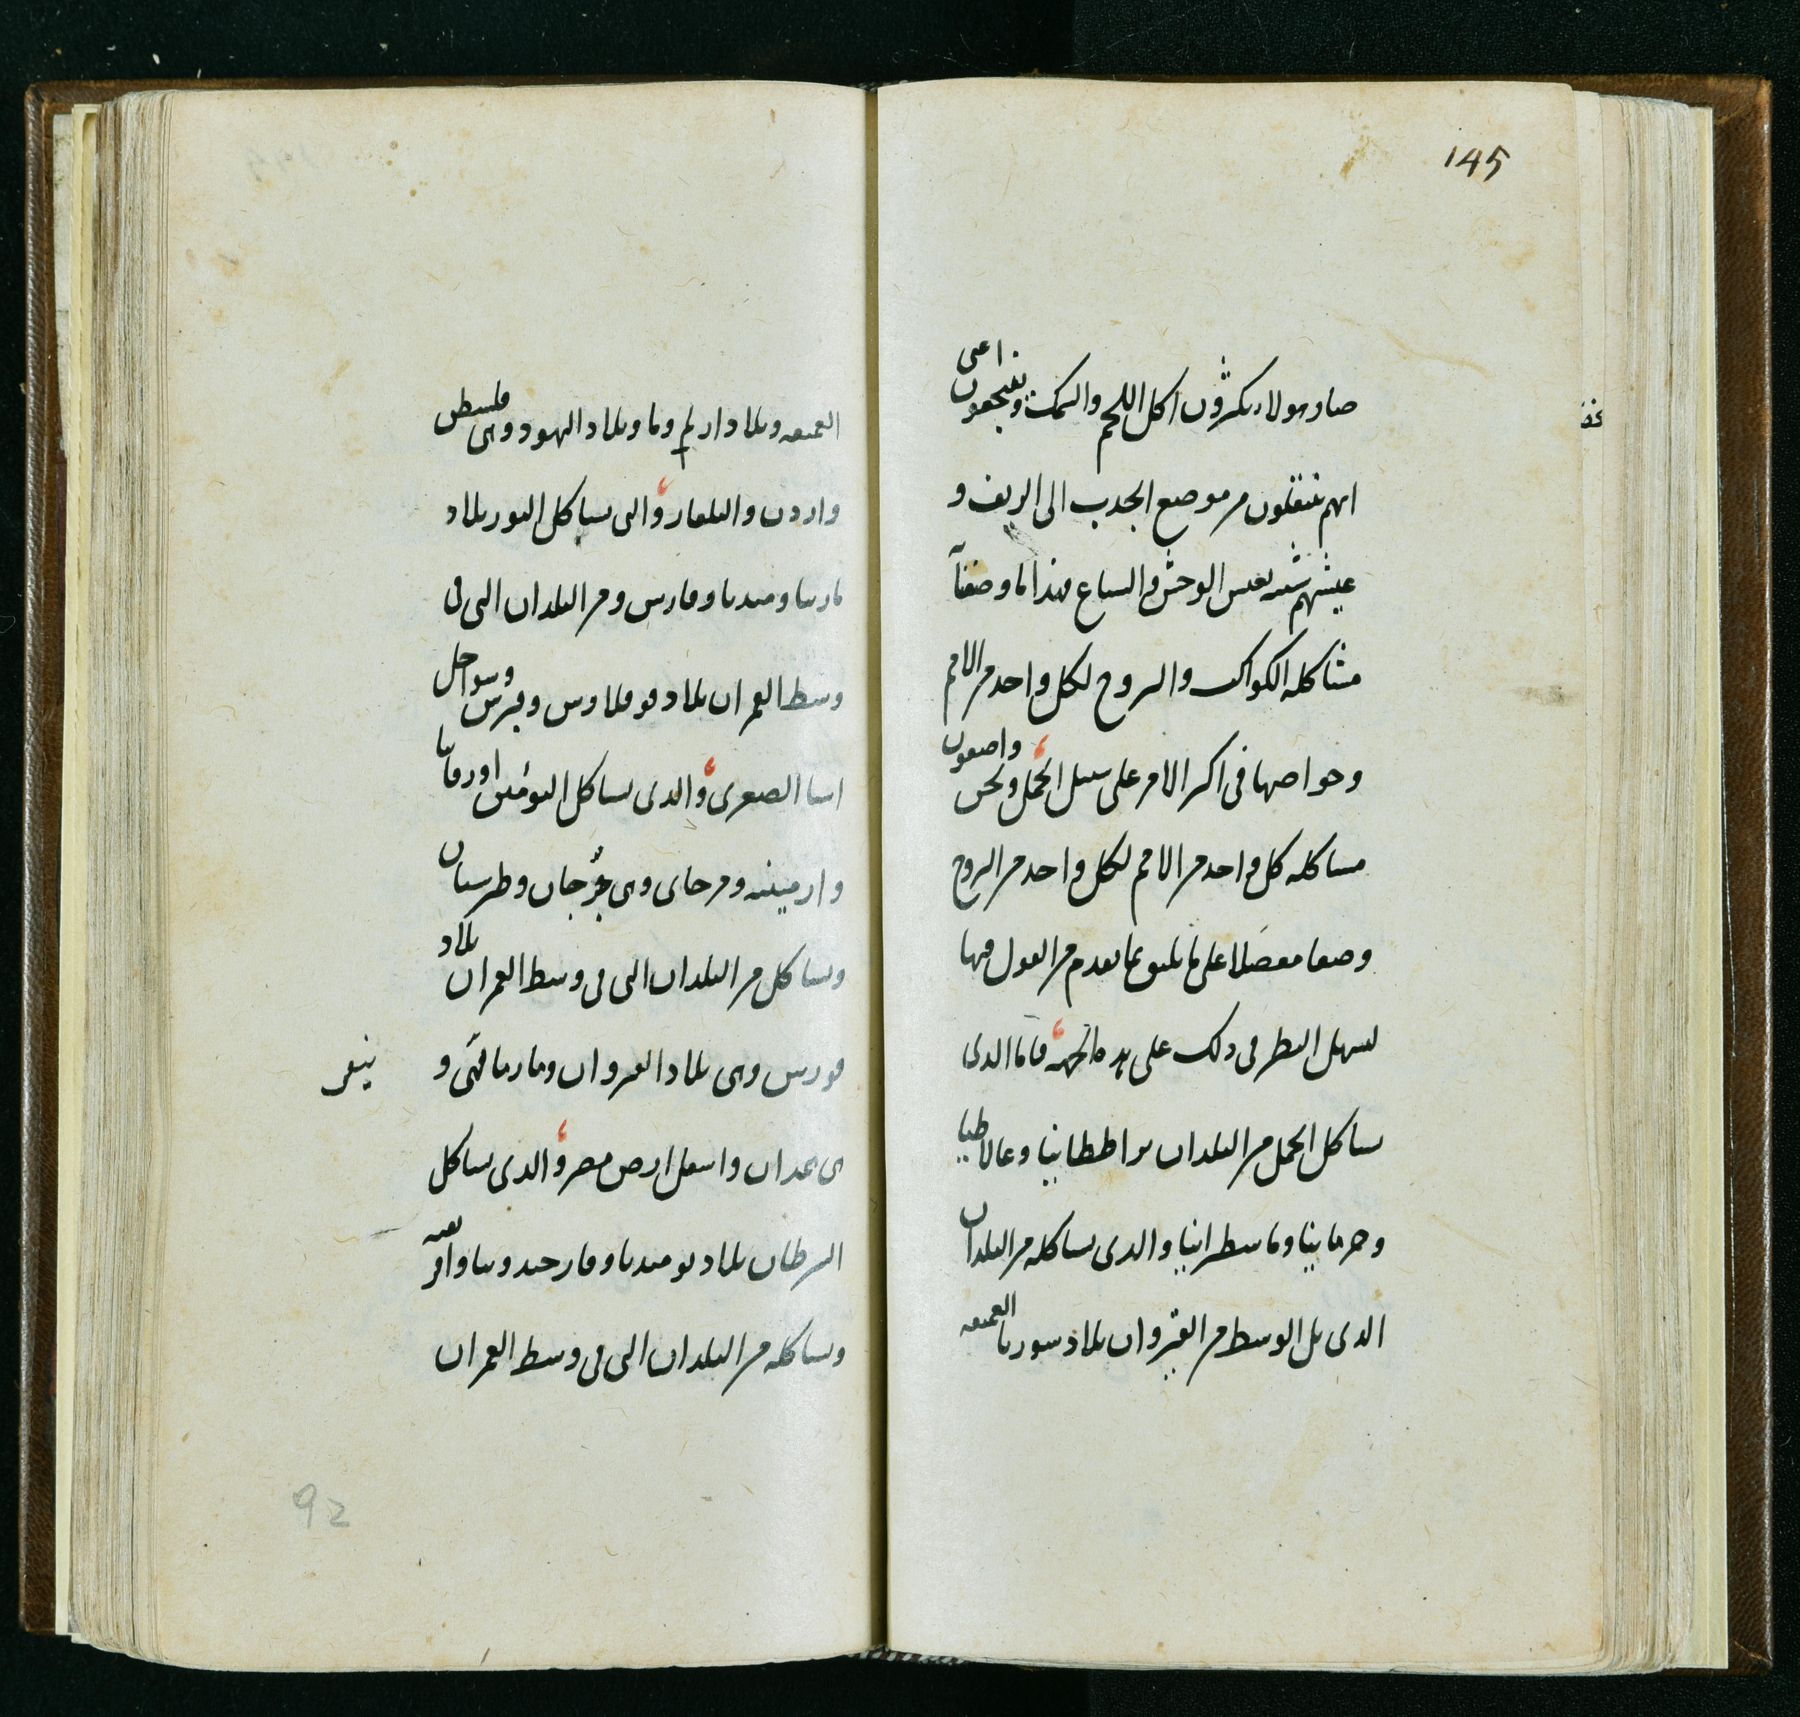 145
صار هولاء يكثرون اكل اللحم والسمك وينتجعون اعنى
انهم ينتقلون من موضع الجدب الى الريف و
عيشهم شبه بعيش الوحش والسباع فهذا ما وصفنا
مشاكله الكواكب والبروج لكل واحد من الامم
وخواصها فى اكثر الامر على سبيل الجمل ونحن واصفون
مشاكله كل واحد من الامم لكل واحد من البروج
وصفا مفصلا على ما يليق بما تقدم من القول فيها
ليسهل النظر فى ذلك على هذه الجهة فاما الذى
يشاكل الحمل من البلدان براططانيا وغالاطيا
وجرمانيا وباسطرانيا والذى يشاكله من البلدان
الذى يلى الوسط من القيروان بلاد سوريا العميقه
العميقه وبلاد وبلاد اليهود وهى فلسطين
واردن والبلقاء والتى يشاكل الثور بلاد
بارثيا وميديا وفارس ومن البلدان التى فى
وسط العمران بلاد قوقلادس وقبرس وسواحل
اسيا الصغرى والذى يشاكل التوءمين اورقانيا
وارمينيه وهى جرجان وطبرستان
ويشاكل من البلدان التى فى وسط العمران بلاد
قورينى وهى بلاد القيروان ومارماقى و
هى واسفل ارض مصر والذى يشاكل
السرطان بلاد نوميديا وقارخيدونيا وافريقيه
ويشاكله من البلدان التى فى وسط العمران
92